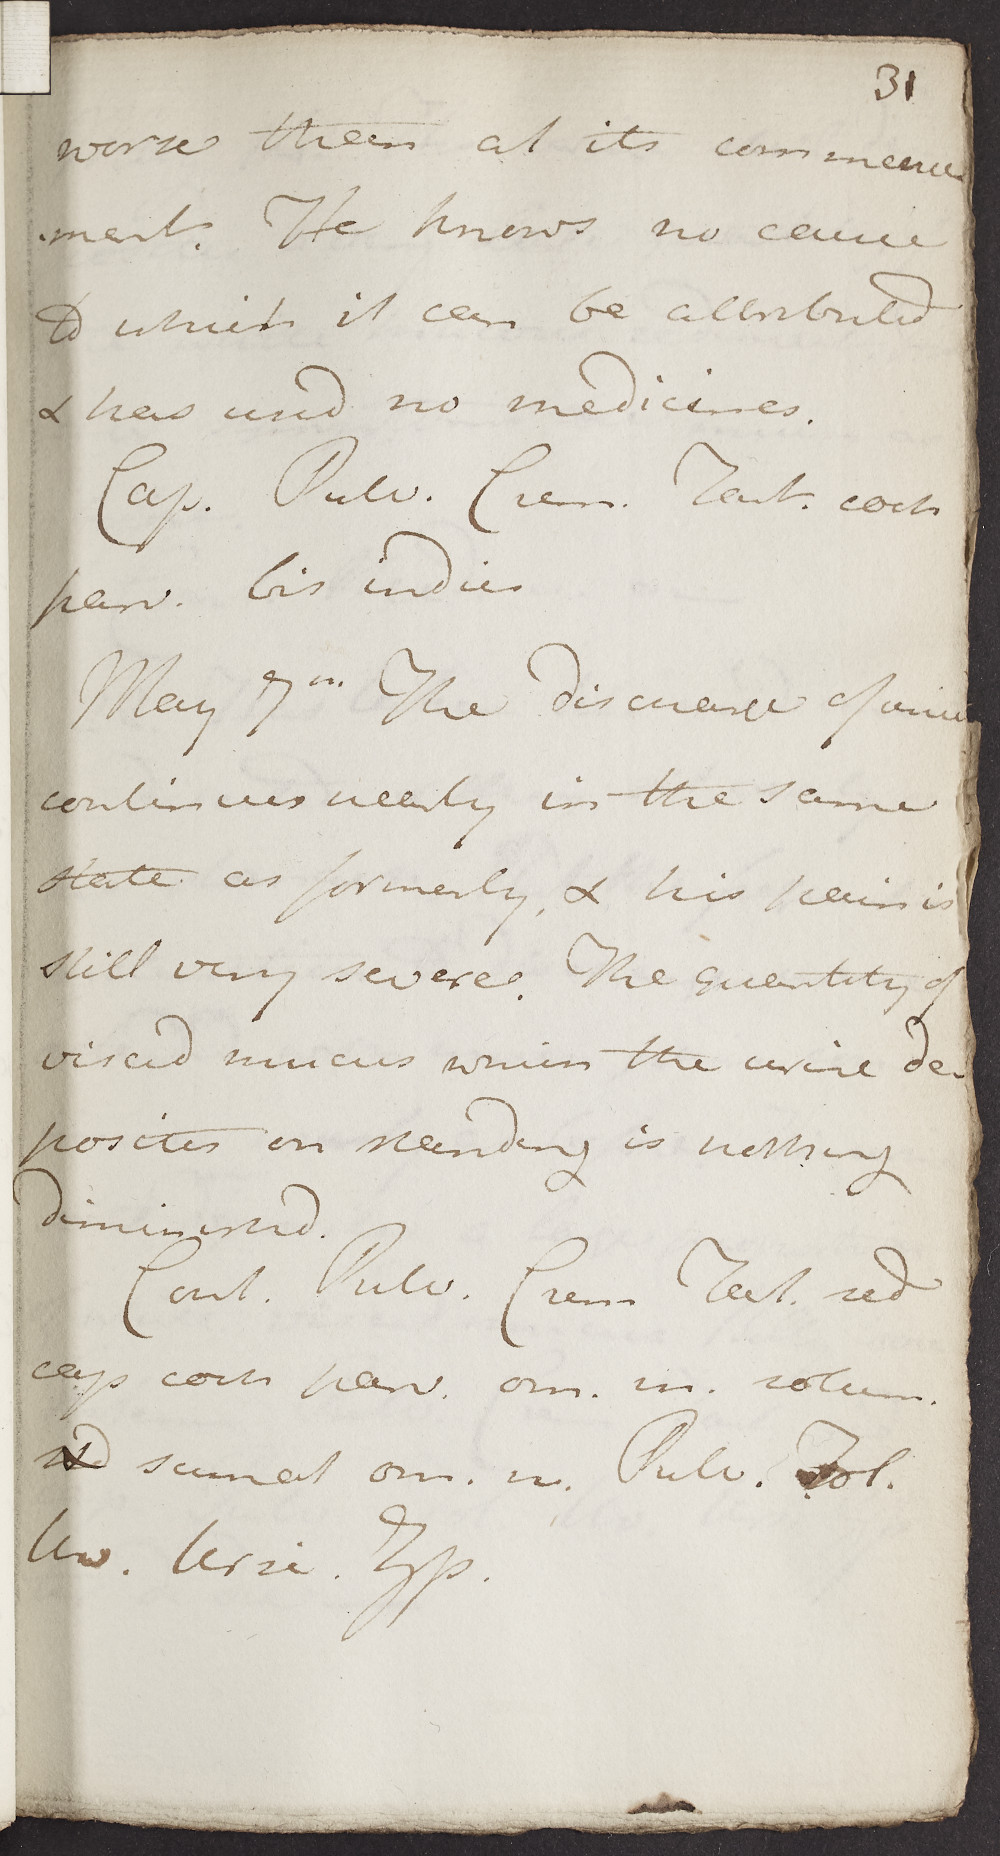 31
worse then at its commence
-ment. He knows no cause
to which it can be attributed
& has used no medicines.
Cap. Pulv. Crem. Tart. coch
parv. bis indies
May 7th The discharge of urine
continues nearly in the same
state as formerly, & his pain is
still very severe. The quantity of
viscid mucus which the urine de-
posites on standing is nothing
diminished.
Cont. Pulv. Crem Tart. sed
cap coch parv. om. m. solum.
& sumat om. n. Pulv. Fol.
Uv. Ursi. ʒss.